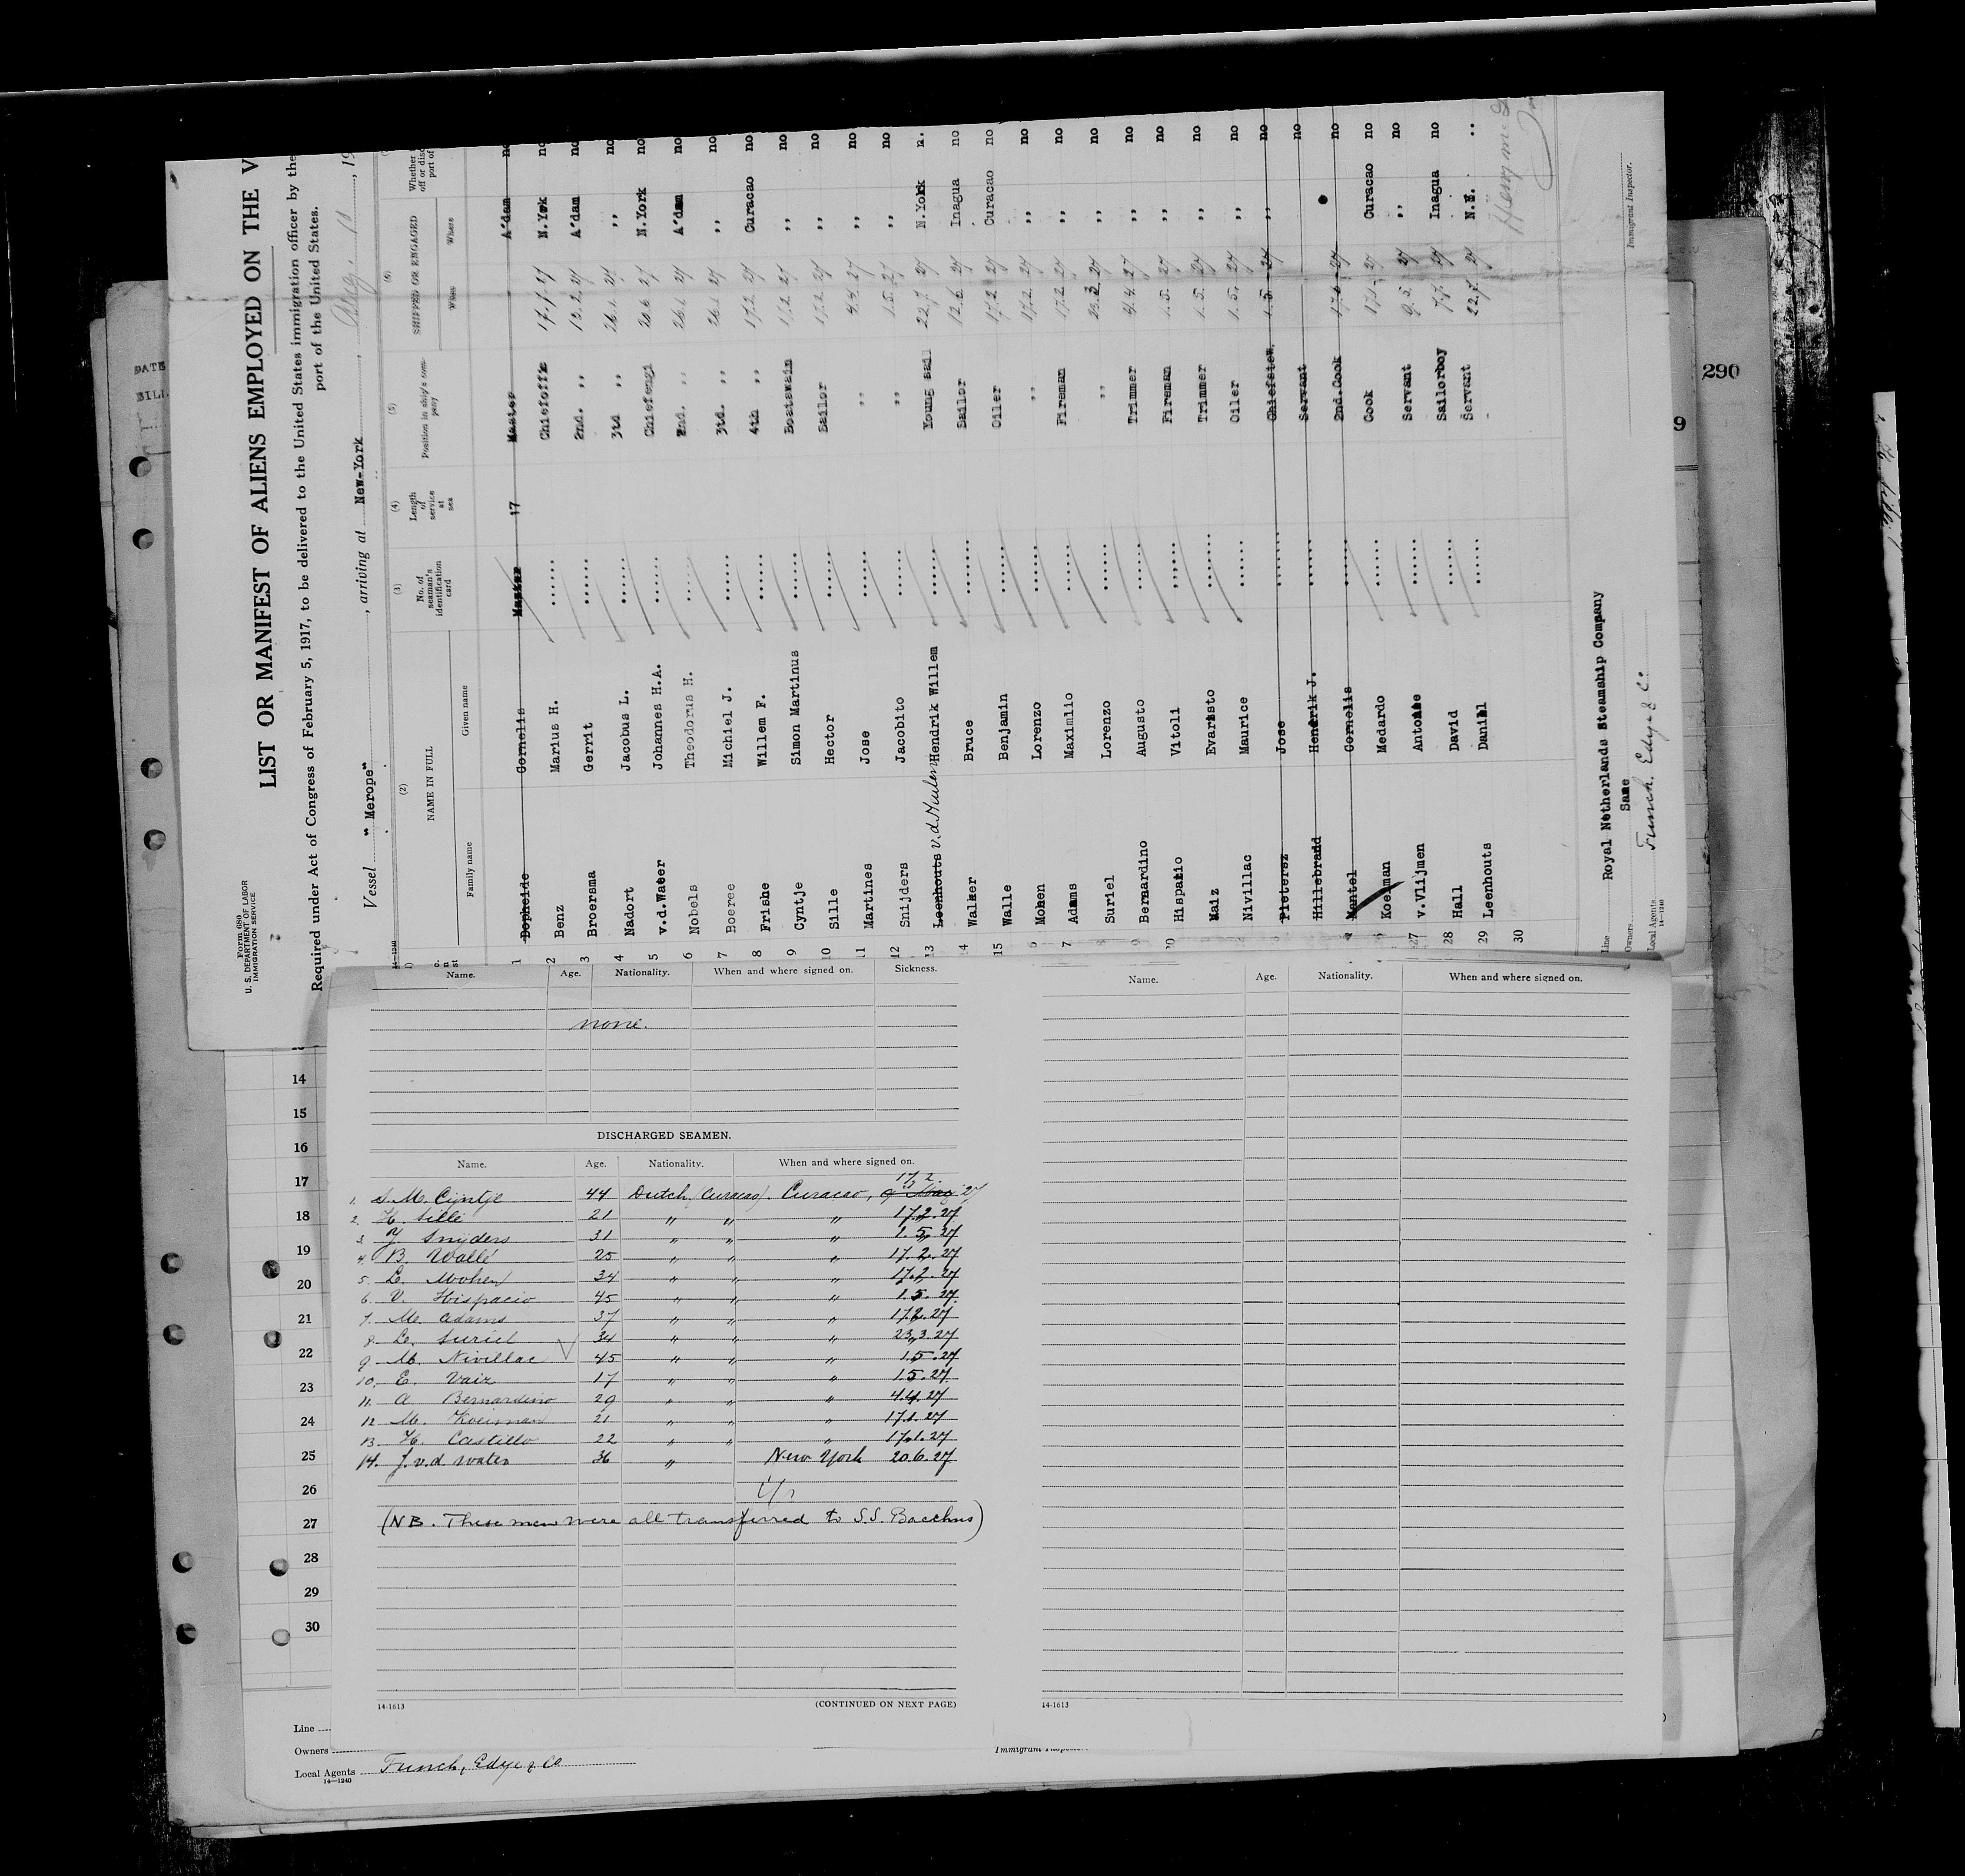 Form 680
U. S. DEPARTMENT OF LABOR
IMMIGRATION SERVICE
LIST OR MANIFEST OF ALIENS EMPLOYED ON THE V
Required under Act of Congress of February 5, 1917, to be delivered to the United States immigration officer by the
port of the United States.
Vessel " Merope" , arriving at New-York , Aug. 10 , 19
(2) (3) (4) (5) (6)
NAME IN FULL No. of seaman's identification card Length of service at sea Position in ship's company SHIPPED OR ENGAGED Whether
Family name Given name When Where
1 Dopheide Cornelis Master 17 Master A'dam no
2 Benz Marius H. ...... Chiefoffic 17.1.27 N.York no
3 Broersma Gerrit ...... 2nd. ,, 12.2.27 A'dam no
4 Nadort Jacobus L. ...... 3td ,, 26.1.27 ,, no
5 v.d.Water Johannes H.A. ...... Chiefengi 20.6.27 N.York no
6 Nobels Theodorus H. ...... 2nd. ,, 26.1.27 A'dam no
7 Boeree Michiel J. ...... 3td. ,, 26.1.27 ,, no
8 Frishe Willem F. ...... 4th ,, 17.2.27 Curacao no
9 Cyntje Simon Martinus ...... Boatswain 17.2.27 ,, no
10 Sille Hector ...... Sailor 17.2.27 ,, no
11 Martines Jose ...... ,, 4.4.27 ,, no
12 Snijders Jacobito ...... ,, 1.5.27 ,, no
13 Leenhouts v.d.Meulen Hendrik Willem ...... Young sail 22.7.27 N.York n.
14 Walker Bruce ...... Sailor 12.6.27 Inagua no
15 Walle Benjamin ...... Oiler 17.2.27 Curacao no
6 Mohen Lorenzo ...... ,, 17.2.27 ,, no
7 Adams Maximlio ...... Fireman 17.2.27 ,, no
Suriel Lorenzo ...... ,, 23.3.27 ,, no
9 Bernardino Augusto ...... Trimmer 4.4.27 ,, no
20 Hispatio Vitoli ...... Fireman 1.5.27 ,, no
Maiz Evaristo ...... Trimmer 1.5.27 ,, no
Nivillac Maurice ...... Oiler 1.5.27 ,, no
Pietersz Jose ...... Chiefstew. 1.5.27 ,, no
Hillebrand Hendrik J. ...... Servant no
Mantel Cornelis ...... 2nd.Cook 17.1.27 no
Koeiman Medardo ...... Cook 17.1.27 Curacao no
27 v.Vlijmen Antonie ...... Servant 9.5.27 ,, no
28 Hall David ...... Sailorboy 7.7.27 Inagua no
29 Leenhouts Daniel ...... Servant 22.7.27 N.E. ..
30
Line Royal Netherlands Steamship Company
Owners Same
Local Agents Funch. Edye & Co
14—1240
Immigrant Inspector.
DATE
BILL
290
9
Name. Age. Nationality. When and where signed on. Sickness.
none.
DISCHARGED SEAMEN.
Name. Age. Nationality. When and where signed on.
1. S. M. Cijntje 44 Dutch (Curacao) Curacao, 17 2 27
2. H. Sille 21 " " " 17.2.27
3. J Snyders 31 " " " 1.5.27
4. B. Wallé 25 " " " 17.2.27
5. L. Mohen 34 " " " 17.2.27
6. V. Hispacio 45 " " " 1.5.27
7. M. Adams 37 " " " 17.2.27
8. L. Suriel 34 " " " 23.3.27
9. M. Nivillac 45 " " " 1.5.27
10. E. Vaiz 17 " " " 1.5.27
11. A Bernardino 29 " " " 4.4.27
12 M. Koeiman 21 " " " 17.1.27
13 H. Castillo 22 " " " 17.1.27
14. J. v.d. Water 36 " New York 20.6.27
(NB. These men were all transferred to S.S. Bacchus)
14-1613
(CONTINUED ON NEXT PAGE)
Name. Age. Nationality. When and where signed on.
14-1613
14
15
16
17
18
19
20
21
22
23
24
25
26
27
28
29
30
Line
Owners
Local Agents Funch, Edye & Co
14—1240
Immigrant Inspector.